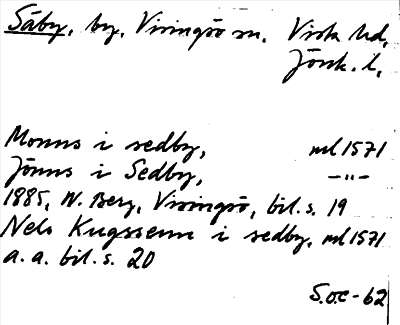 Säby, by, Visingsö sn. Vista hd,
Jönk. l.
Monns i sedby, ml 1571
Jönns i Sedby, –"–
1885, W. Berg, Visingsö, bil. s. 19
Nels Kugssenn i sedby, ml 1571
a. a. bil. s. 20
S.oc-62